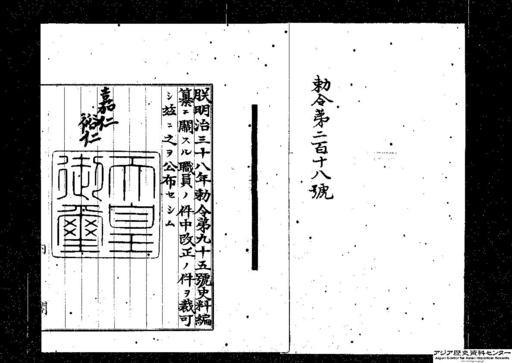 勅令第二百十八號
朕明治三十八年勅令第九十五號史料編
纂ニ關スル職員ノ件中改正ノ件ヲ裁可
シ茲ニ之ヲ公布セシム
嘉仁
裕仁
天皇
御璽
内
閣
アジア歴史資料センター
Japan Center for Asian Historical Records